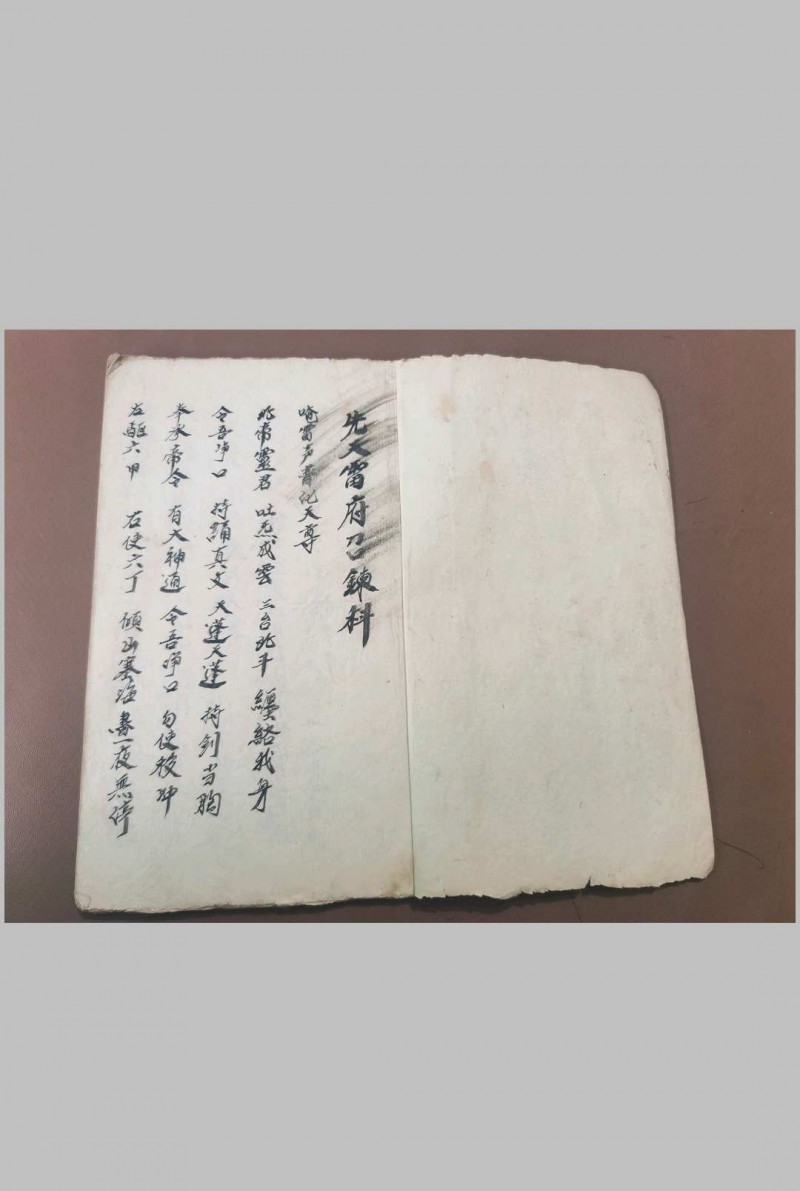 先天雷府召鍊科
唵雷声普化天尊
北帝靈君 吐炁成雲 三台北斗 纓絡我身
令吾净口 持誦真文 天蓬天蓬 持剑当胸
奉承帝令 有大神通 令吾净口 勿使移
左驅六甲 右使六丁 傾山塞海 昼夜無停